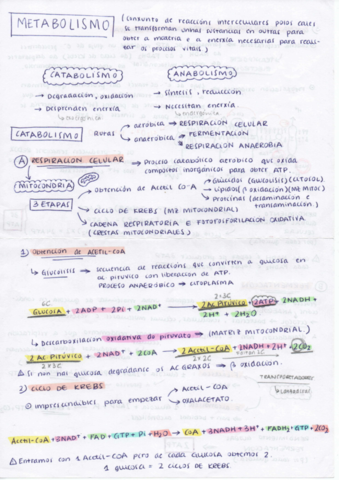 METABOLISMO (conxunto de reaccións intercelulares polas cales
se transforman unhas sustancias en outras para
obter a materia e a enerxía necesarias para realizar
os procesos vitais)
CATABOLISMO ANABOLISMO
→ Degradación, oxidación → Síntesis, reducción
→ Desprenden enerxía → Necesitan enerxía
CATABOLISMO Rutas aeróbica → RESPIRACIÓN CELULAR
anaeróbica → FERMENTACIÓN
→ RESPIRACIÓN ANAEROBIA
A RESPIRACIÓN CELULAR → Proceso catabólico aerobico que oxida
compostos inorgánicos para obter ATP.
MITOCONDRIA
3 ETAPAS → Obtención de Acetil CoA → Glúcidos (Glucólisis) (citosol)
→ Lípidos (β oxidación) (M2 mitoc)
→ Proteínas (desaminación e
transaminación)
→ CICLO DE KREBS (M2 mitocondrial)
→ CADENA RESPIRATORIA E FOTOFOSFORILACIÓN OXIDATIVA
(crestas mitocondriales)
1) OBTENCIÓN DE ACETIL-COA
→ Glucólise → secuencia de reaccións que convirten a glucosa en
ac pirúvico con liberación de ATP.
PROCESO ANAEROBICO → CITOPLASMA
6C 2×3C
Glucosa + 2ADP + 2Pi + 2NAD⁺ → 2 Ac Pirúvico + 2ATP + 2NADH +
2H⁺ + 2H₂O
→ Descarboxilación oxidativa do piruvato → (MATRIZ MITOCONDRIAL)
2 Ac Pirúvico + 2NAD⁺ + 2CoA → 2 Acetil-CoA + 2NADH + 2H⁺ + 2CO₂
2×3C 2×2C
△ Si non hai glucosa degrádanse os AC GRAXOS → β oxidación.
2) CICLO DE KREBS
TRANSPORTADORES
imprescindibles para empezar → Acetil-CoA
→ oxalacetato
Acetil-CoA + 3NAD⁺ + FAD + GTP + Pi + H₂O → CoA + 3NADH + 3H⁺ + FADH₂ + GTP + 2CO₂
△ Entramos con 1 Acetil-CoA pero de cada glucosa obtemos 2.
1 glucosa = 2 CICLOS DE KREBS